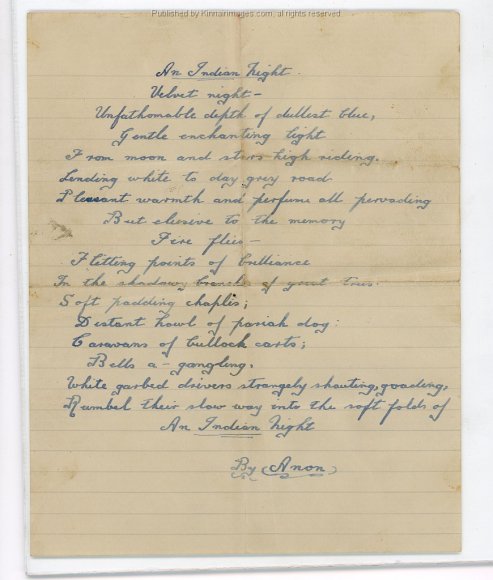 Published by Kinnairimages.com, all rights reserved
An Indian Night.
Velvet night –
Unfathomable depth of dullest blue,
Gentle enchanting light
From moon and stars high riding,
Lending white to day grey road
Pleasant warmth and perfume all pervading
But elusive to the memory
Fire flies –
Flitting points of brilliance
In the shadowy branches of great trees.
Soft padding chaplis;
Distant howl of pariah dog:
Caravans of bullock carts;
Bells a-gangling,
White garbed drivers strangely shouting, goading,
Rumbel their slow way into the soft folds of
An Indian Night
By (Anon)